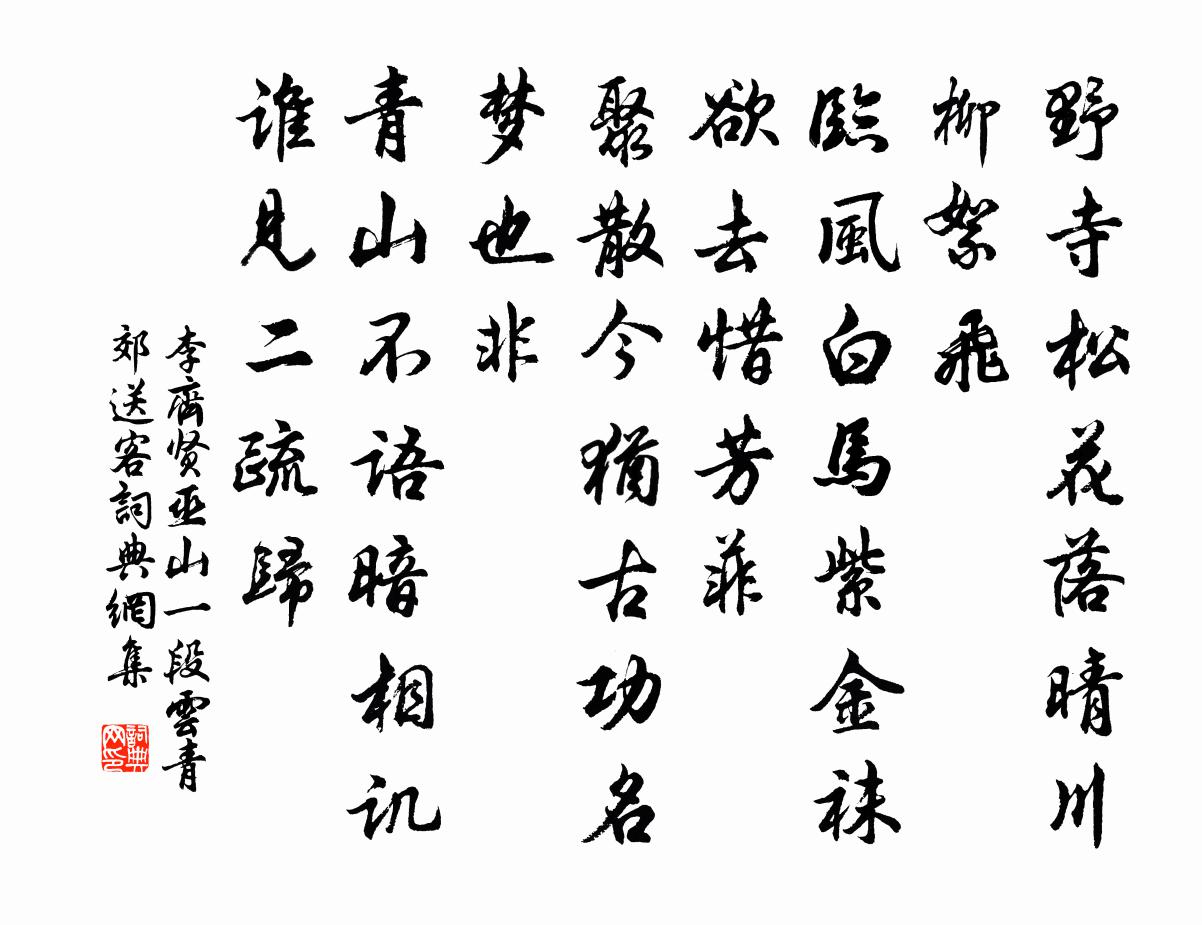 野寺松花落晴川
柳絮飛
臨風白馬紫金袜
欲去惜芳菲
聚散今猶古功名
梦也非
青山不语暗相讥
谁見二疏歸
李齊贤巫山一段雲青
郊送客詞典網集
詞典网印